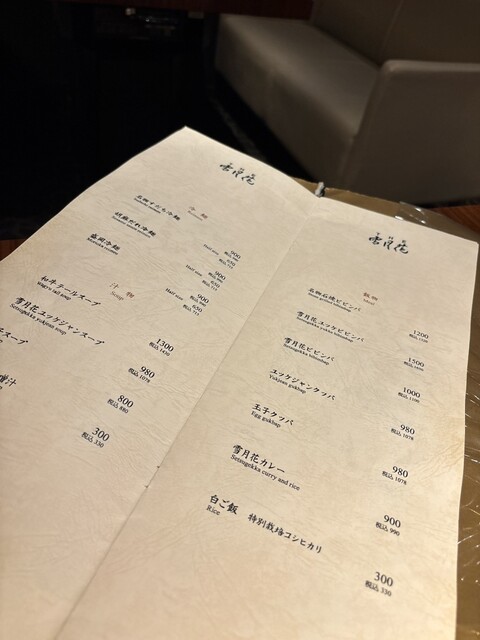 雪月花
冷麺
名物すだち冷麺
900
Half size 650
胡麻だれ冷麺
900
Half size 650
盛岡冷麺
900
Half size 650
汁物
Soup
和牛テールスープ
wagyu tail soup
1300
税込 1430
雪月花ユッケジャンスープ
Setsugekka yukjean soup
980
税込 1078
スープ
800
税込 880
噌汁
300
税込 330
雪月花
飯物
名物石焼ビビンバ
1200
雪月花ユッケビビンバ
1500
雪月花ビビンバ
Setsugekka bibimbap
1000
税込 1100
ユッケジャンクッパ
Yukjean gukbap
980
税込 1078
玉子クッパ
Egg gukbap
980
税込 1078
雪月花カレー
Setsugekka curry and rice
900
税込 990
白ご飯 特別栽培コシヒカリ
Rice
300
税込 330